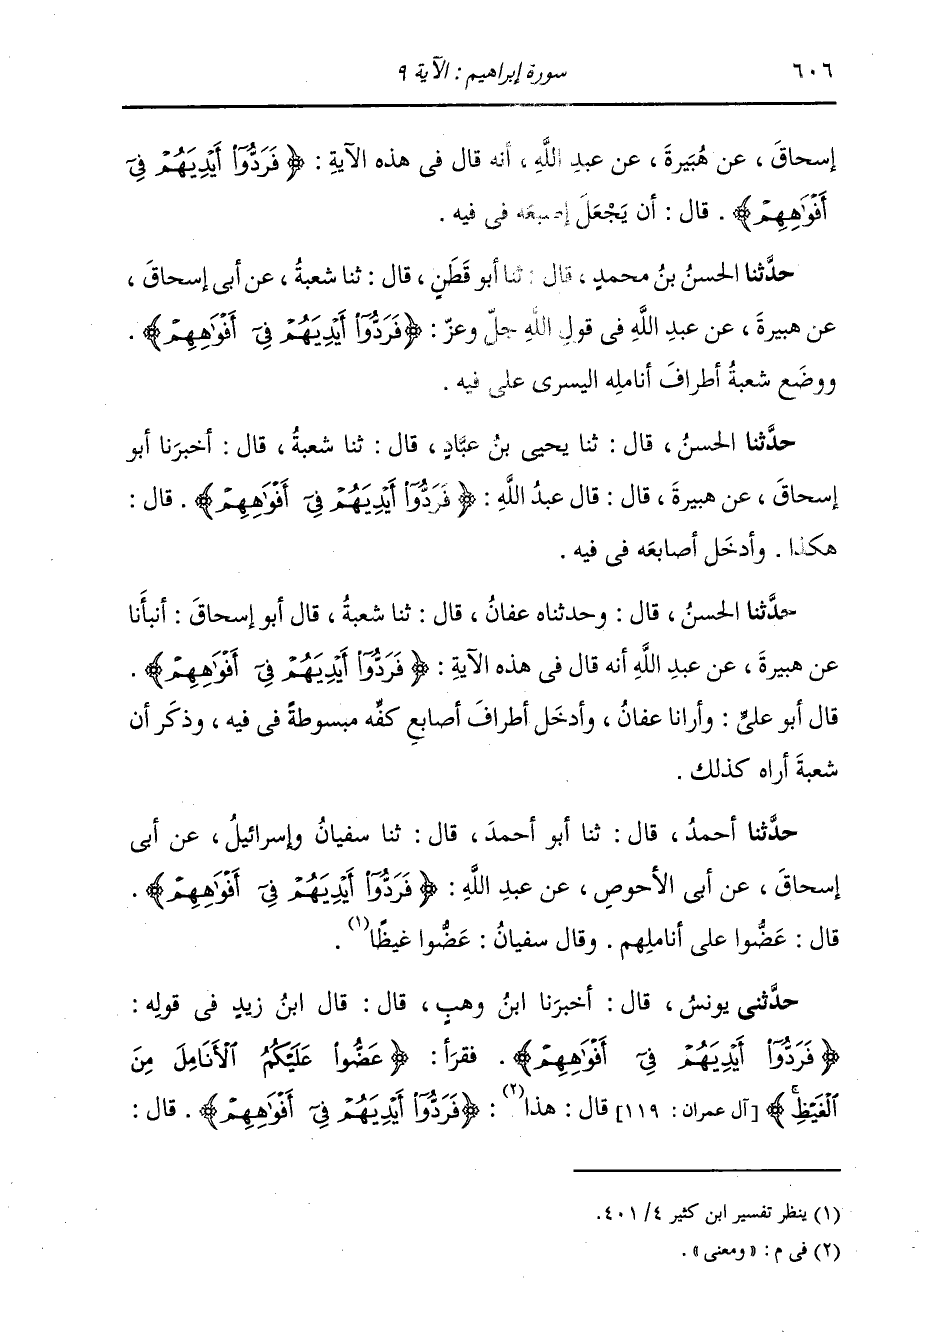 ٦٠٦
سورة إبراهيم : الآية ٩
إسحاقَ ، عن هُبَيرةَ ، عن عبدِ اللَّهِ ، أنه قال فى هذه الآيةِ : ﴿ فَرَدُّوٓا۟ أَيْدِيَهُمْ فِىٓ
أَفْوَٰهِهِمْ ﴾ . قال : أن يَجْعَلَ إصبعَه فى فيه .
حدَّثنا الحسنُ بنُ محمدٍ ، قال : ثنا أبو قَطَنٍ ، قال : ثنا شعبةُ ، عن أبى إسحاقَ ،
عن هبيرةَ ، عن عبدِ اللَّهِ فى قولِ اللَّهِ جلّ وعزّ : ﴿ فَرَدُّوٓا۟ أَيْدِيَهُمْ فِىٓ أَفْوَٰهِهِمْ ﴾ .
ووضَع شعبةُ أطرافَ أناملِه اليسرى على فيه .
حدَّثنا الحسنُ ، قال : ثنا يحيى بنُ عبَّادٍ ، قال : ثنا شعبةُ ، قال : أخبرَنا أبو
إسحاقَ ، عن هبيرةَ ، قال : قال عبدُ اللَّهِ : ﴿ فَرَدُّوٓا۟ أَيْدِيَهُمْ فِىٓ أَفْوَٰهِهِمْ ﴾ . قال :
هكذا . وأدخَل أصابعَه فى فيه .
حدَّثنا الحسنُ ، قال : وحدثناه عفانُ ، قال : ثنا شعبةُ ، قال أبو إسحاقَ : أنبأَنا
عن هبيرةَ ، عن عبدِ اللَّهِ أنه قال فى هذه الآيةِ : ﴿ فَرَدُّوٓا۟ أَيْدِيَهُمْ فِىٓ أَفْوَٰهِهِمْ ﴾ .
قال أبو علىٍّ : وأرانا عفانُ ، وأدخَل أطرافَ أصابعِ كفِّه مبسوطةً فى فيه ، وذكَر أن
شعبةَ أراه كذلك .
حدَّثنا أحمدُ ، قال : ثنا أبو أحمدَ ، قال : ثنا سفيانُ وإسرائيلُ ، عن أبى
إسحاقَ ، عن أبى الأحوصِ ، عن عبدِ اللَّهِ : ﴿ فَرَدُّوٓا۟ أَيْدِيَهُمْ فِىٓ أَفْوَٰهِهِمْ ﴾ .
قال : عَضُّوا على أناملِهم . وقال سفيانُ : عَضُّوا غيظًا(١) .
حدَّثنى يونسُ ، قال : أخبرَنا ابنُ وهبٍ ، قال : قال ابنُ زيدٍ فى قولِه :
﴿ فَرَدُّوٓا۟ أَيْدِيَهُمْ فِىٓ أَفْوَٰهِهِمْ ﴾ . فقرَأ : ﴿ عَضُّوا۟ عَلَيْكُمُ ٱلْأَنَامِلَ مِنَ
ٱلْغَيْظِۚ ﴾ [آل عمران : ١١٩] قال : هذا(٢) : ﴿ فَرَدُّوٓا۟ أَيْدِيَهُمْ فِىٓ أَفْوَٰهِهِمْ ﴾ . قال :
(١) ينظر تفسير ابن كثير ٤/ ٤٠١.
(٢) فى م : « ومعنى » .